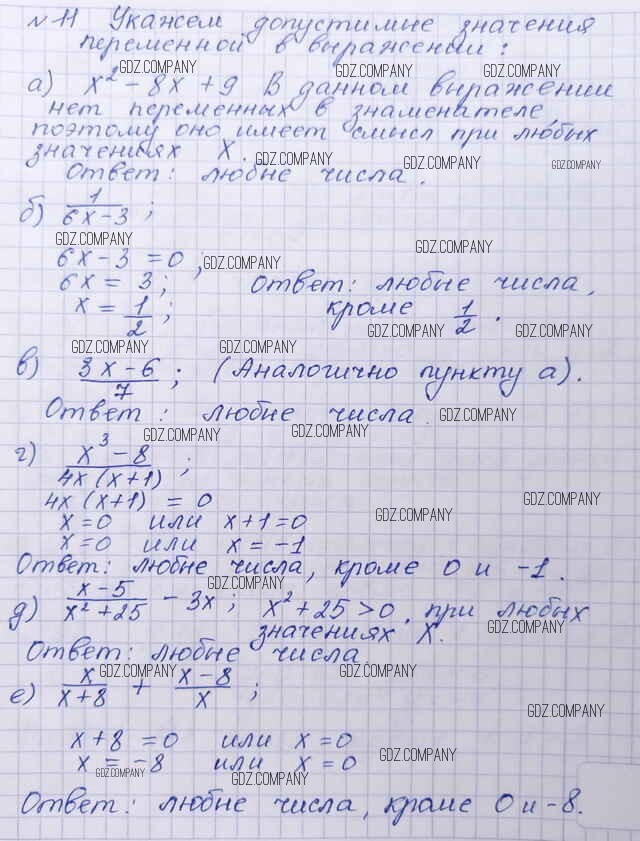 № 11 Укажем допустимые значения
переменной в выражении:
а) x² - 8x + 9 В данном выражении
GDZ.COMPANY GDZ.COMPANY GDZ.COMPANY
нет переменных в знаменателе,
поэтому оно имеет смысл при любых
значениях X. GDZ.COMPANY GDZ.COMPANY GDZ.COMPANY
Ответ: любые числа.
б) 1/(6x-3);
GDZ.COMPANY GDZ.COMPANY
6x-3 = 0; GDZ.COMPANY
6x = 3; Ответ: любые числа,
x = 1/2; кроме 1/2.
GDZ.COMPANY GDZ.COMPANY
GDZ.COMPANY GDZ.COMPANY
в) (3x-6)/7; (Аналогично пункту а).
Ответ: любые числа. GDZ.COMPANY
GDZ.COMPANY GDZ.COMPANY
г) (x³-8)/(4x(x+1));
4x(x+1) = 0 GDZ.COMPANY
x=0 или x+1=0 GDZ.COMPANY
x=0 или x=-1
Ответ: любые числа, кроме 0 и -1.
GDZ.COMPANY
д) (x-5)/(x²+25) - 3x; x²+25>0, при любых
значениях X. GDZ.COMPANY
Ответ: любые числа
GDZ.COMPANY GDZ.COMPANY
е) x/(x+8) + (x-8)/x;
GDZ.COMPANY
x+8 = 0 или x = 0
x = -8 или x = 0 GDZ.COMPANY
GDZ.COMPANY GDZ.COMPANY
Ответ: любые числа, кроме 0 и -8.